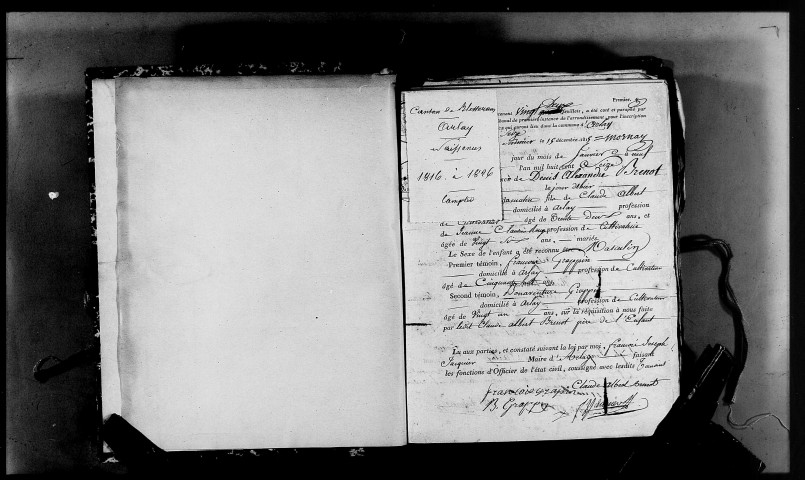 Canton de Bletterans
Arlay
Naissances
1816 à 1826
Complet
Premier.
vingt feuillets, a été coté et paraphé par
tribunal de première instance de l'arrondissement, pour l'inscription
qui auront lieu dans la commune d'Arlay
le 15 décembre 1815 Mornay
jour du mois de Janvier à neuf
l'an mil huit cent Seize
de Denis Alexandre Brenot
le jour d'hier
fils de Claude Albert
domicilié à Arlay profession
de âgé de Trente Deux ans, et
de Jeanne Claudine profession de Cultivatrice
âgée de Vingt Six ans, mariée
Le Sexe de l'enfant a été reconnu Masculin
Premier témoin, François Grappin
domicilié à Arlay profession de Cultivateur
âgé de Cinquante huit ans
Second témoin, Bonaventure Grappin
domicilié à Arlay profession de Cultivateur
âgé de Vingt un ans, sur la réquisition à nous faite
par ledit Claude Albert Brenot père de l'Enfant
Lu aux parties, et constaté suivant la loi par moi, François Joseph
Jacquier Maire d'Arlay faisant
les fonctions d'Officier de l'état civil, soussigné avec lesdits
Claude albert brenot
francois grappin
B. Grappin